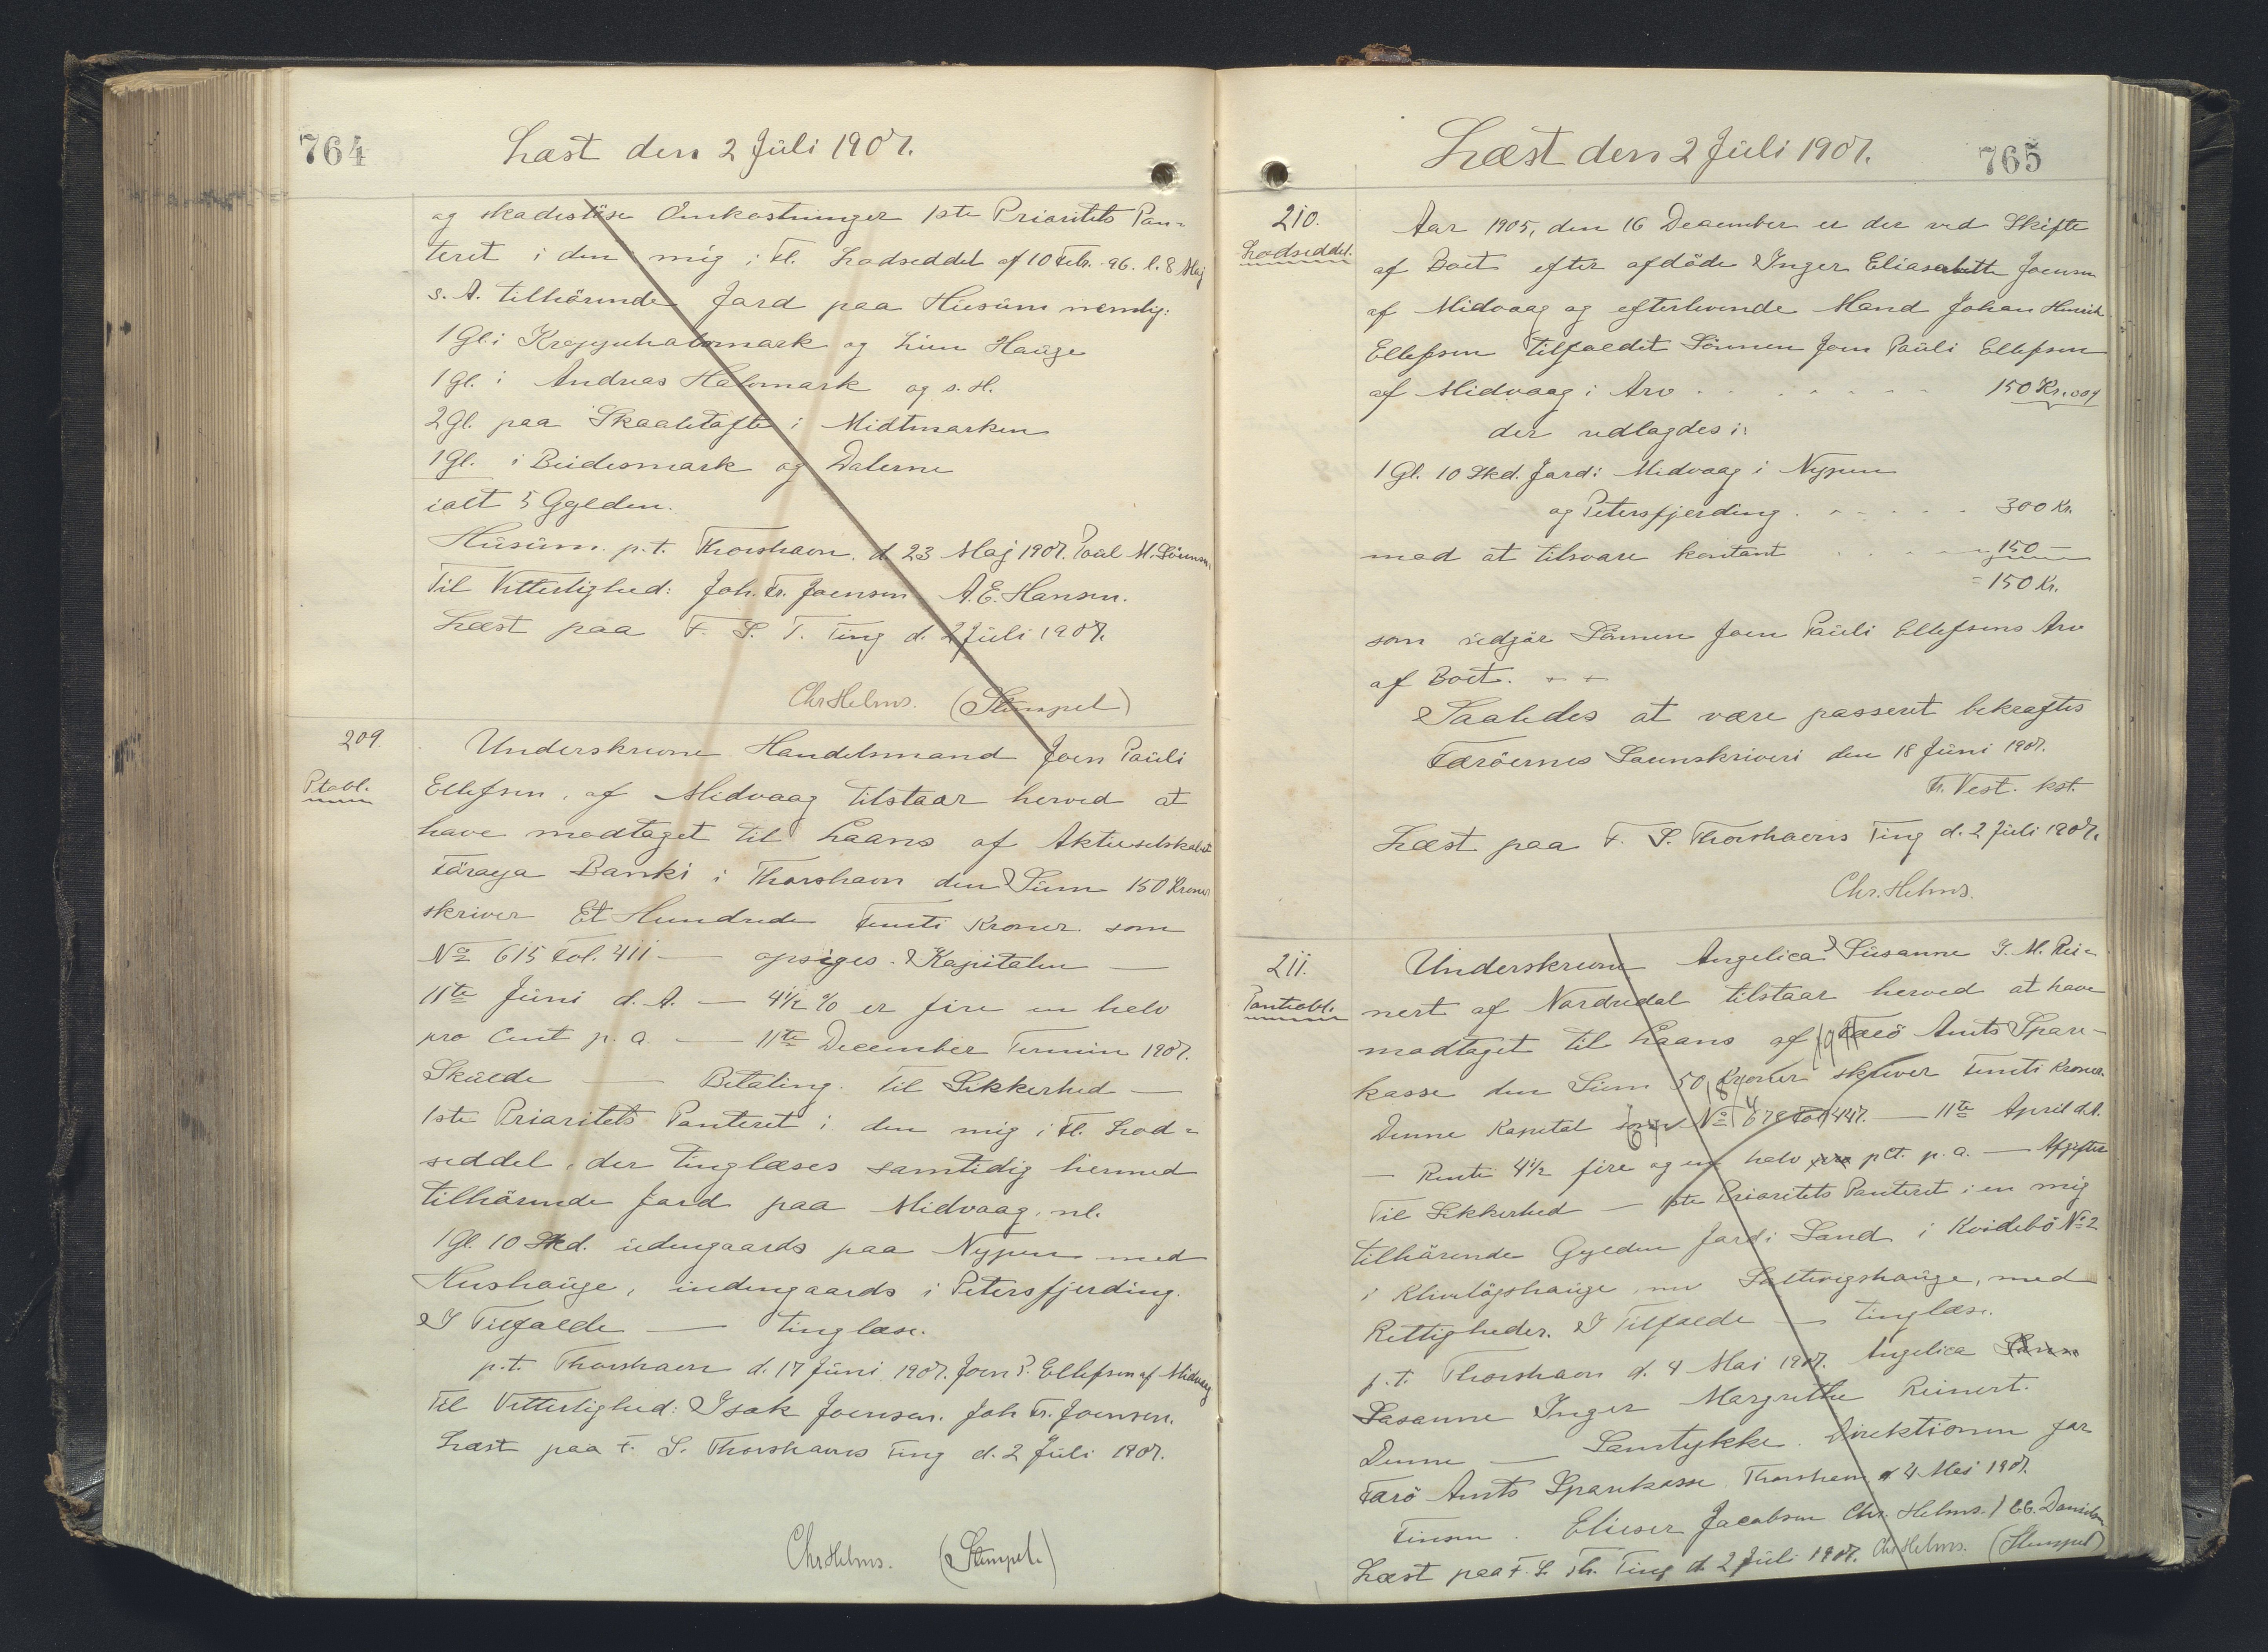 764
Læst den 2 Juli 1907.
og skadesløse Omkostninger 1ste Prioritets Pan=
teret i den mig i Fl. Lodseddel af 10 Febr. 96. l. 8 Maj
s. A. tilhörende Jord paa Husum nemlig:
1 Gl. i og Lim Hauge
1 Gl. i Andreas Halvmark og s. H.
2 Gl. paa Skaaletofte i Midtmarken
1 Gl. i Beidesmark og Dalerne
ialt 5 Gylden.
Husum p.t. Thorshavn. d. 23 Maj 1907. Poul M. Sörensen.
Til Vitterlighed: Joh. Fr. Joensen A. E. Hansen.
Læst paa F. S. T. Ting d. 2 Juli 1907.
Chr Helms. (Stempel)
209.
Ptobl.
Underskrevne Handelsmand Joen Pauli
Ellefsen, af Midvaag tilstaar herved at
have modtaget til Laans af Aktieselskabet
Föroya Banki i Thorshavn den Sum 150 Kroner
skriver Et Hundrede Femti Kroner som
No 615 Fol. 411 — opsiges. Kapitalen —
11te Juni d. A. — 4½ % er fire en halv
pro Cent p. a. — 11te December Termin 1907.
Skulde — Betaling. Til Sikkerhed —
1ste Prioritets Panteret i den mig i Fl. Lod=
seddel, der tinglæses samtidig hermed
tilhörende Jord paa Midvaag, nl.
1 Gl. 10 Skd. udengaards paa Nypen med
Hushauge, indengaards i Petersfjerding.
I Tilfælde — tinglæse.
p.t. Thorshavn d. 17 Juni 1907. Joen P. Ellefsen af Midvaag
Til Vitterlighed: Isak Joensen. Joh Fr. Joensen.
Læst paa F. S. Thorshavns Ting d. 2 Juli 1907.
Chr Helms. (Stempel.)
Læst den 2 Juli 1907.
765
210.
Lodseddel.
Aar 1905, den 16 December er der ved Skifte
af Boet efter afdöde Inger Joensen
af Midvaag og efterlevende Mand Johan Hinrik
Ellefsen tilfaldet Sönnen Joen Pauli Ellefsen
af Midvaag i Arv . . . . . . 150 Kr.
der udlagdes i:
1 Gl. 10 Skd. Jord i Midvaag i Nypen
og Petersfjerding . . . . . 300 Kr.
mod at tilsvare kontant . . . . . 150 —
= 150 Kr.
som udgör Sönnen Joen Pauli Ellefsens Arv
af Boet. + +
Saaledes at være passeret bekræftes
Færöernes Sorenskriveri den 18 Juni 1907.
Fr. Vest. kst.
Læst paa F. S. Thorshavns Ting d. 2 Juli 1907.
Chr. Helms.
211.
Panteobl.
Underskrevne Angelica Susanne I. M. Rei=
nert af Nordredal tilstaar herved at have
modtaget til Laans af Færö Amts Spare-
kasse den Sum 50 Kroner skriver Femti Kroner.
Denne Kapital som No 678 Fol 447. — 11te April d. A.
— Rente 4½ fire og en halv pro pCt. p. a. — Afgifter
Til Sikkerhed — 1ste Prioritets Panteret i en mig
tilhörende Gylden Jord i Sand i Kvidebö No 2
i nu med
Rettigheder. I Tilfælde — tinglæse.
p.t. Thorshavn d. 4 Mai 1907. Angelica
Susanne Inger Margrethe Reinert.
Denne — Samtykke. Direktionen for
Færö Amts Sparekasse. Thorshavn d 4 Mai 1907.
Finsen. Elieser Jacobsen Chr. Helms. / Danielsen
Læst paa F. S. Th. Ting d. 2 Juli 1907. Chr Helms. (Stempel)